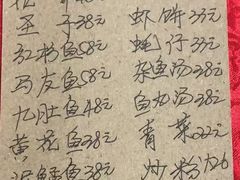 圣子38元 虾饼33元
红粉鱼58元 蚝仔33元
马友鱼58元 杂鱼汤38元
九肚鱼48元 鱼丸汤38元
黄花鱼38元 青菜22元
鱼38元 炒粉